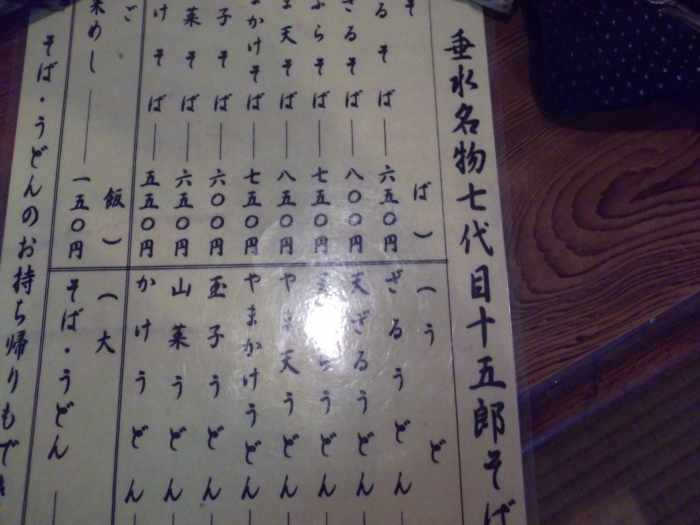 垂水名物七代目十五郎そば
そば）
るそば 六五〇円
ざるそば 八〇〇円
ぷらそば 七五〇円
ま天そば 八五〇円
まかけそば 七五〇円
子そば 六〇〇円
菜そば 六五〇円
けそば 五五〇円
ご飯）
米めし 一五〇円
（うど
ざるうどん
天ざるうどん
うどん
やま天うどん
やまかけうどん
玉子うどん
山菜うどん
かけうどん
（大
そば・うどん
そば・うどんのお持ち帰りもでき